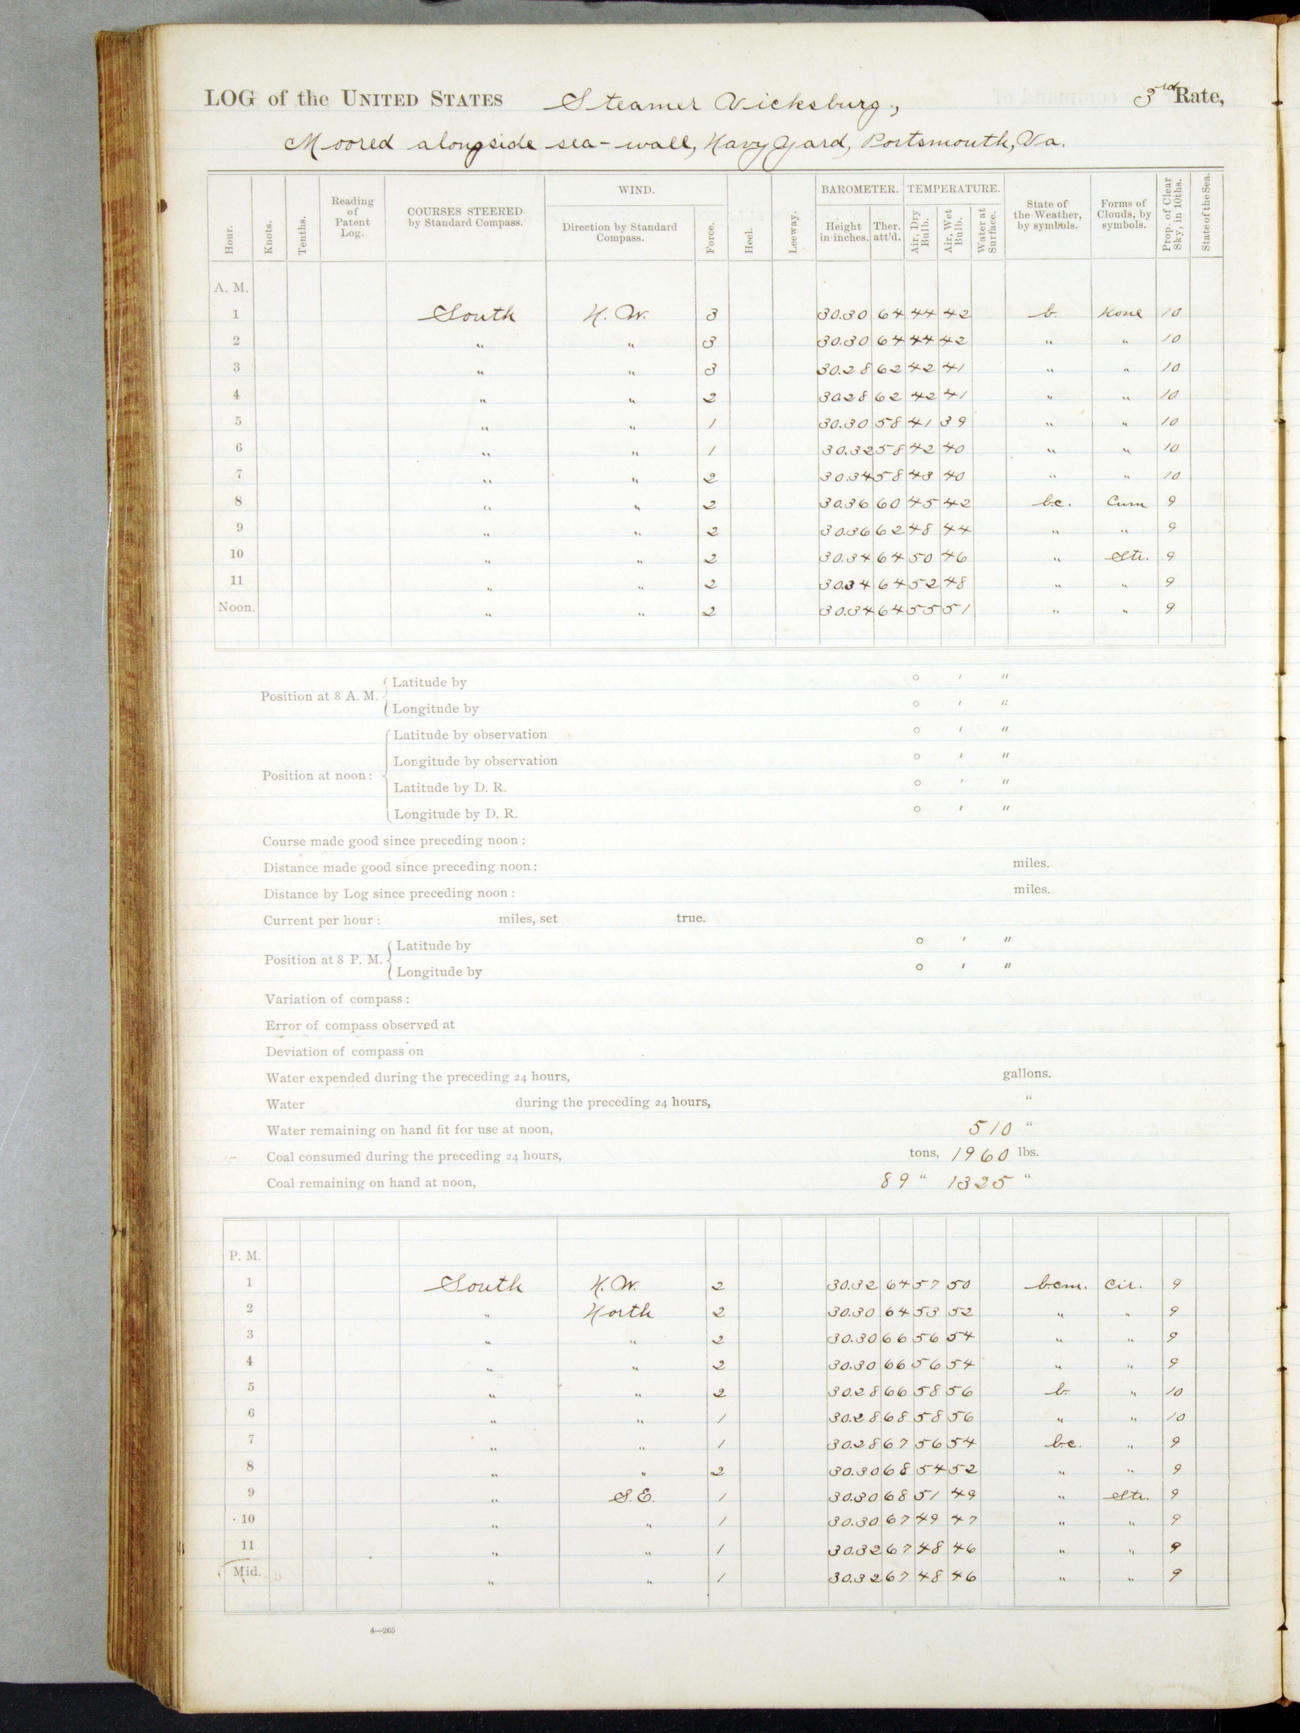 LOG of the UNITED STATES Steamer Vicksburg, 3rd Rate,
Moored alongside sea-wall, Navy Yard, Portsmouth, Va.
Hour. Knots. Tenths. Reading of Patent Log. COURSES STEERED by Standard Compass. WIND. Direction by Standard Compass. Force. Heel. Leeway. BAROMETER. Height in inches. Ther. att'd. TEMPERATURE. Air, Dry Bulb. Air, Wet Bulb. Water at Surface. State of the Weather, by symbols. Forms of Clouds, by symbols. Prop. of Clear Sky, in 10ths. State of the Sea.
A. M.
1 South N.W. 3 30.30 64 44 42 b. None 10
2 " " 3 30.30 64 44 42 " " 10
3 " " 3 30.28 62 42 41 " " 10
4 " " 2 30.28 62 42 41 " " 10
5 " " 1 30.30 58 41 39 " " 10
6 " " 1 30.32 58 42 40 " " 10
7 " " 2 30.34 58 43 40 " " 10
8 " " 2 30.36 60 45 42 b.c. Cum 9
9 " " 2 30.36 62 48 44 " " 9
10 " " 2 30.34 64 50 46 " Str. 9
11 " " 2 30.34 64 52 48 " " 9
Noon. " " 2 30.34 64 55 51 " " 9
Position at 8 A. M. { Latitude by ° ′ ″
Longitude by ° ′ ″
Position at noon: { Latitude by observation ° ′ ″
Longitude by observation ° ′ ″
Latitude by D. R. ° ′ ″
Longitude by D. R. ° ′ ″
Course made good since preceding noon:
Distance made good since preceding noon: miles.
Distance by Log since preceding noon: miles.
Current per hour: miles, set true.
Position at 8 P. M. { Latitude by ° ′ ″
Longitude by ° ′ ″
Variation of compass:
Error of compass observed at
Deviation of compass on
Water expended during the preceding 24 hours, gallons.
Water during the preceding 24 hours, "
Water remaining on hand fit for use at noon, 510 "
Coal consumed during the preceding 24 hours, tons, 1960 lbs.
Coal remaining on hand at noon, 89 " 1325 "
P. M.
1 South N.W. 2 30.32 64 57 50 b.c.m. Cir. 9
2 " North 2 30.30 64 53 52 " " 9
3 " " 2 30.30 66 56 54 " " 9
4 " " 2 30.30 66 56 54 " " 9
5 " " 2 30.28 66 58 56 b. " 10
6 " " 1 30.28 68 58 56 " " 10
7 " " 1 30.28 67 56 54 b.c. " 9
8 " " 2 30.30 68 54 52 " " 9
9 " S.E. 1 30.30 68 51 49 " Str. 9
10 " " 1 30.30 67 49 47 " " 9
11 " " 1 30.32 67 48 46 " " 9
Mid. " " 1 30.32 67 48 46 " " 9
4—265